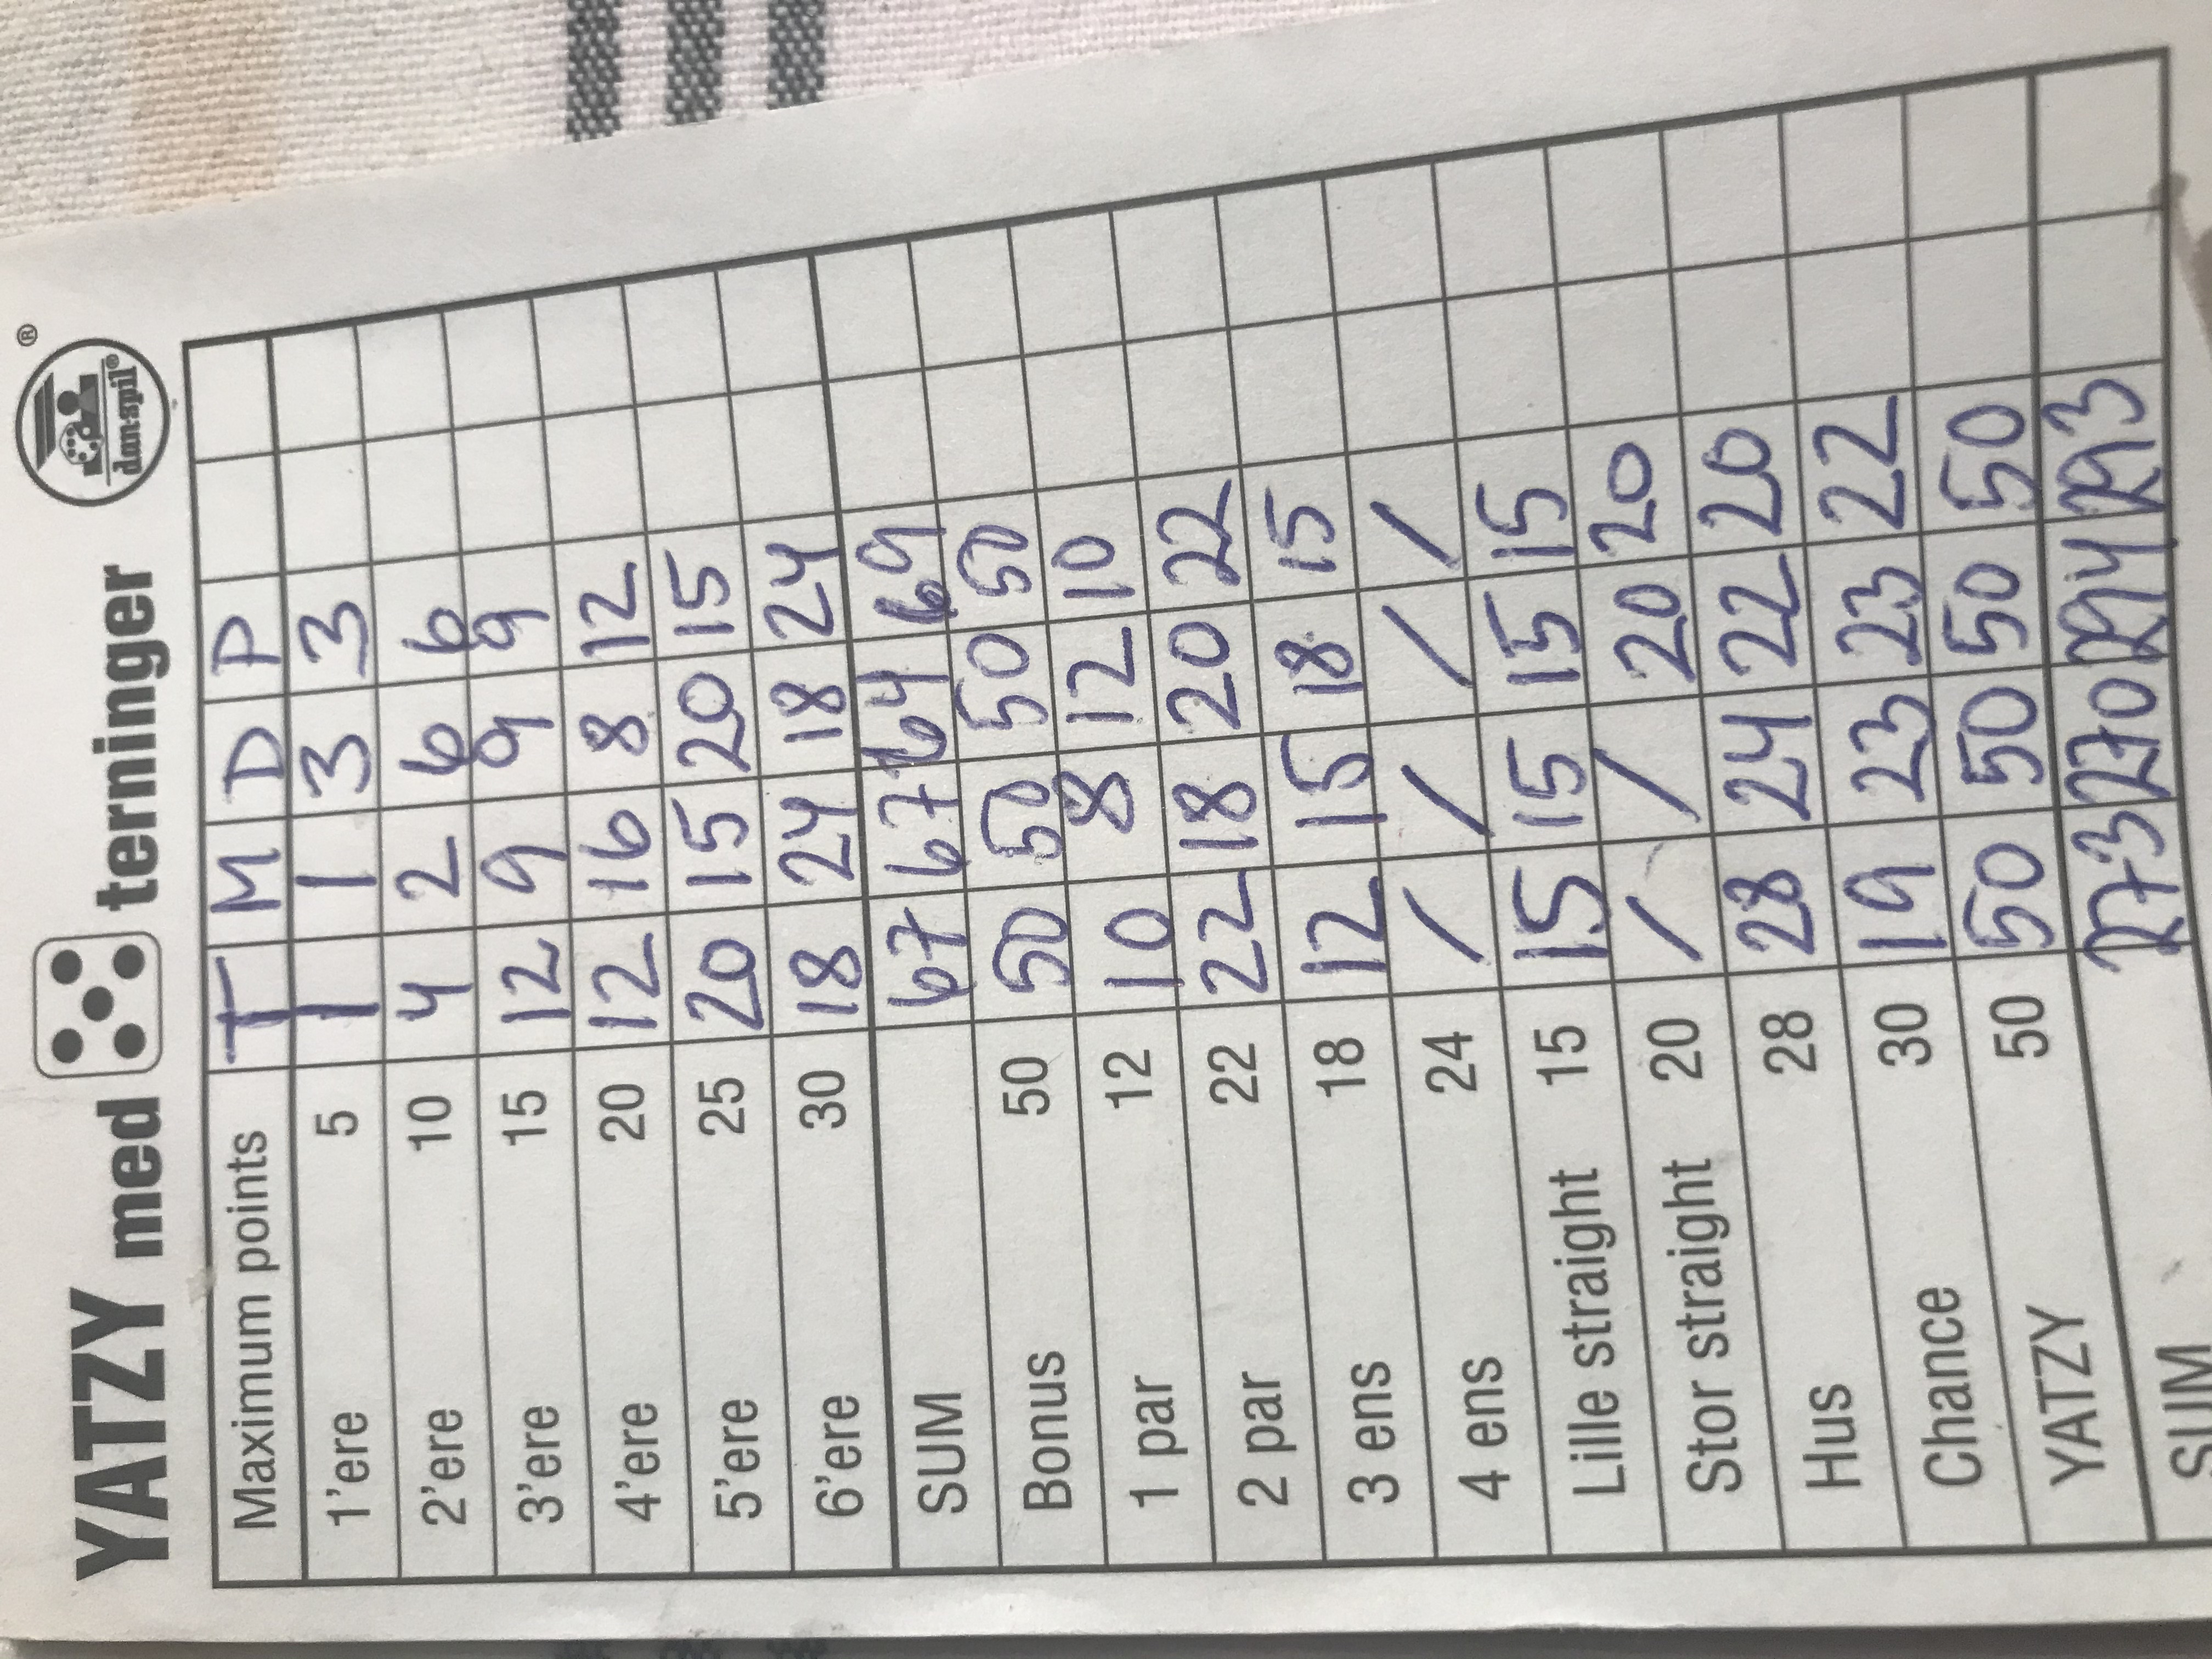 YATZY med terninger
dan-spil®
®
Maximum points T M D P
1'ere 5 1 1 3 3
2'ere 10 4 2 6 6
3'ere 15 12 9 9 9
4'ere 20 12 16 8 12
5'ere 25 20 15 20 15
6'ere 30 18 24 18 24
SUM 67 67 64 69
Bonus 50 50 50 50 50
1 par 12 10 8 12 10
2 par 22 22 18 20 22
3 ens 18 12 15 18 15
4 ens 24 / / / /
Lille straight 15 15 15 15 15
Stor straight 20 / / 20 20
Hus 28 28 24 22 20
Chance 30 19 23 23 22
YATZY 50 50 50 50 50
SUM 273 270 294 293